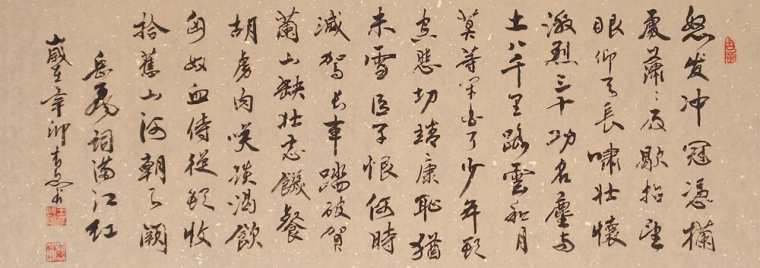 怒发冲冠憑欄
處蕭々雨歇抬望
眼仰天長嘯壯懷
激烈三十功名塵与
土八千里路雲和月
莫等闲白了少年頭
空悲切靖康恥猶
未雪臣子恨何時
滅駕长車踏破賀
蘭山缺壮志饑餐
胡虜肉笑談渴飲
匈奴血待從頭收
拾舊山河朝天闕
岳飛詞满江红
歲在辛卯